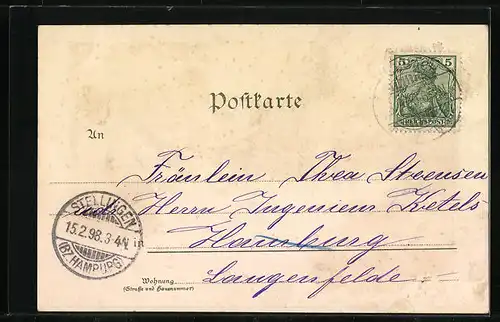 5 5
REICHSPOST
Postkarte
An
Fräulein Thea Steensen
STELLINGEN
15.2.98.3-4N
(BZ. HAMBURG)
Herrn Ingenieur Ketels
in Hamburg
Wohnung
(Straße und Hausnummer)
Langenfelde.